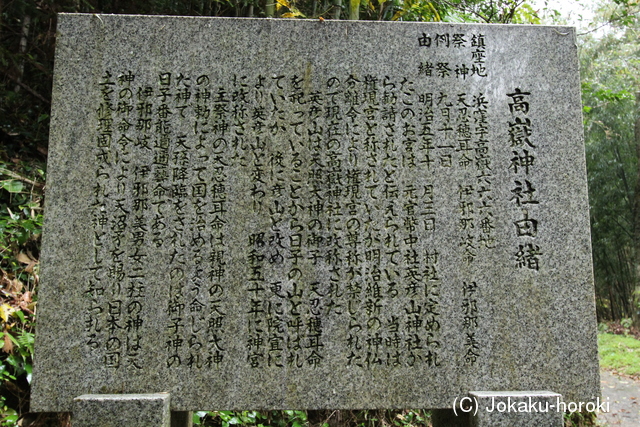 高嶽神社由緒
鎮座地 浜窪字高嶽六六六番地
祭神 天忍穂耳命 伊邪那岐命 伊邪那美命
例祭 九月十一日
由緒 明治五年十一月三日 村社に定められ
たこのお宮は 元官幣中社英彦山神社か
ら勧請されたと伝えられている 当時は
権現宮と称されていたが明治維新の神仏
分離令により権現宮の尊称が禁じられた
ので現在の高嶽神社に改称された
英彦山は天照大神の御子 天忍穂耳命
を祀っていることから日子の山と呼ばれ
ていたが 後に彦山と改め 更に院宣に
より英彦山と変わり 昭和五十年に神宮
に改称された
主祭神の天忍穂耳命は親神の天照大神
の神勅によって国を治めるよう命じられ
た神で 天孫降臨をされたのは御子神の
日子番能邇邇藝命である
伊邪那岐 伊邪那美男女二柱の神は天
神の御命令により天沼矛を賜り日本の国
土を修理固成られた神として知られる
(C) Jokaku-horoki